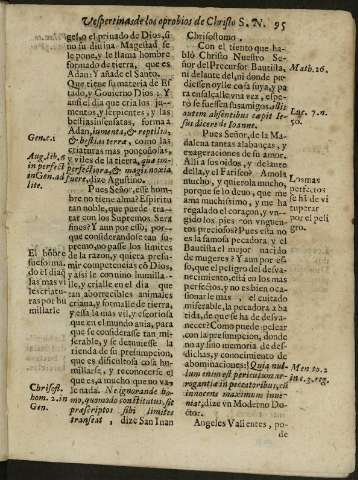 Vespertinas de los oprobios de Christo S. N. 95
gel, o el privado de Dios, si
no su divina Magestad se
le pone, y le llama hombre
formado de tierra, que es
Adan: Y añade el Santo.
Que tiene su materia de Es
tado, y Govierno Dios; Y
aun el dia que cria los ju-
mentos, y serpientes y las
bestias insensatas, forma a
Adan, iumenta, & reptilia,
& bestias terræ, como las
criaturas mas ponçoñosas,
y viles de la tierra, quæ im-
perfectiora, & magis noxia
fuere, dize Agustino.
Pues Señor, esse hom-
bre no tiene alma? Espiritu
tan noble, que puede tra-
tar con los Supremos Sera
fines? Y aun por esso, por-
que considerandose tan su-
premo, no passe los limites
de la razon, y quiera presu-
mir competencias cõ Dios,
y assi le convino humilla-
lle, y crialle en el dia que
tan aborrecibles animales
criana, y formalle de tierra,
y essa la mas vil, y escoria
que en el mundo avia, para
que se considerasse tan mi-
serable, y se detuviesse la
rienda de su presumpcion,
que es dificultosa cosa hu-
millarse, y reconocerse el
que es, a mucho que no va-
le nada. Ne ignorande ho-
mo, quomodo constitutus, sit
præscriptos sibi limites
transeat, dize San Iuan
Gen. c. 1
Aug. lib. 1
in perfect
in Gen. ad
lite.
El hõbre
fue forma
do el dia q̃
las mas vi
les criatu-
ras por hu
millarle
Chrisost.
hom. 2. in
Gen.
Chrisostomo.
Con el tiento que ha-
blò Christo Nuestro Se-
ñor del Precursor Bautista,
ni delante del, ni donde pu-
diessen oylle cosa suya, y pa
ra ensalçalle vna vez, espe-
rò se fuessen sus amigos. Illis
autem absentibus cœpit Ie-
sus dicere de Ioanne.
Pues Señor, de la Ma-
dalena tantas alabanças, y
exageraciones de su amor.
Allì a sus oidos, y delante
della, y el Fariseo? Amola
mucho, y quierola mucho,
porque ѕi lo demò, que me
ama muchissimo, y me ha
regalado el coraçon, y vn-
gido los pies con vnguen-
tos preciosos? Pues esta no
es la famosa pecadora, y el
Bautista el mejor nacido
de mugeres? Y aun por es-
so, que el peligro del desva-
necimiento, està en los mas
perfectos, y no es bien oca-
sionarle mas, el cuitado
miserable, la pecadora a ba
tida, de que se ha de desva-
necer? Como puede pelear
con la presumpcion, donde
no ay sino memoria de des-
dichas, y conocimiento de
abominaciones: Quia nul-
lum enim est periculum ar-
rogantiæ in peccatoribus, cũ
innocens maximum inve-
niat, dize vn Moderno Do-
ctor.
Angeles Valientes, po
de
Math. 26.
Luc. 7. n.
50.
Los mas
perfectos
se ha de vi
uperar por
el peli
gro.
Men to. 2
in c. 3. reg.